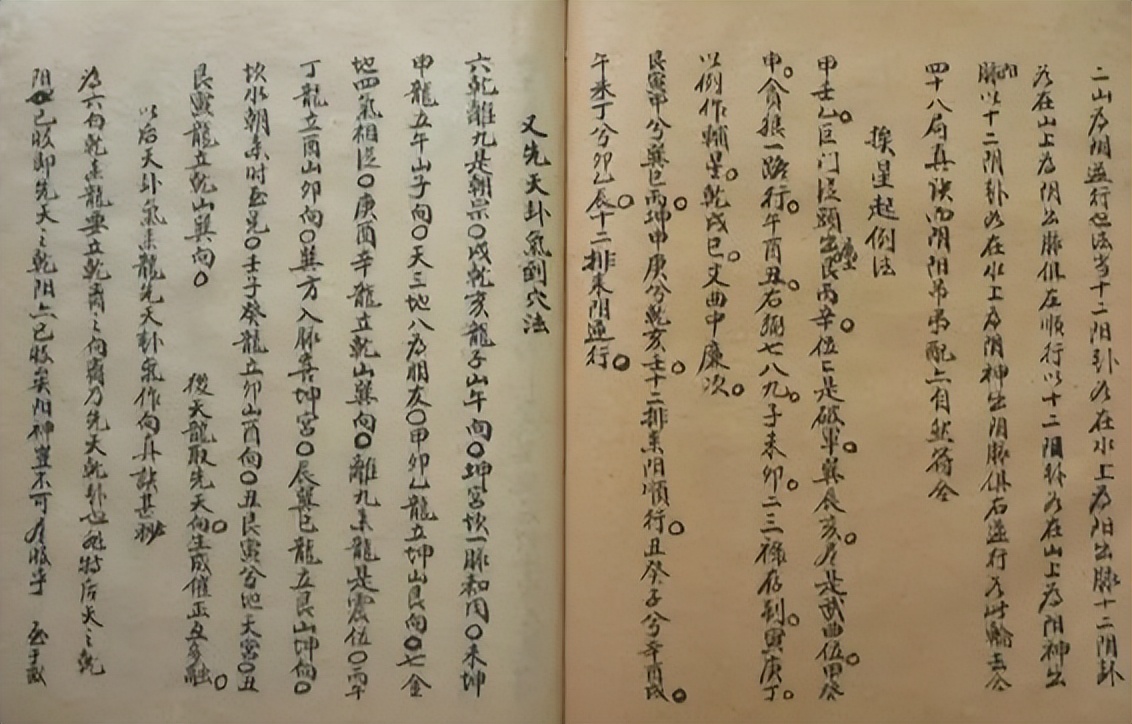 二山为阴逆行也法当十二阳卦为在水上为阳出脉十二阴卦
为在山上为阴出脉俱左顺行以十二阴卦为在山上为阳神出
脉以十二阴卦为在水上为阴神出阴脉俱右逆行为此輪去合
四十八局真诀而阴阳吊配亠自然符合
挨星起例法
甲壬乙巨门從頭出艮丙辛位亡是破軍巽辰亥尽是武曲位甲癸
申貪狼一路行午酉丑右弼七八九子未卯二三禄存到寅庚丁
以例作輔星乾戌巳文曲中廉次
艮寅甲兮巽巳丙坤申庚兮乾亥壬十二排来阳順行丑癸子兮辛酉戌
午未丁兮卯乙辰十二排来阴逆行
又先天卦氣到穴法
六乾離九是朝宗戌乾亥龍子山午向坤宮坎一脉和同未坤
申龍立午山子向天三地八为朋友甲卯乙龍立坤山艮向七金
地四氣相從庚酉辛龍立乾山巽向離九来龍是震位丙午
丁龍立酉山卯向巽方入脉喜坤宮辰巽巳龍立艮山坤向
坎水朝来时至兑壬子癸龍立卯山酉向丑艮寅兮地天宮丑
艮寅龍立乾山巽向 後天龍取先天向生成催正互多融
以后天卦氣来龍先天卦氣作向真訣甚妙
为六向乾来龍要立乾甫之向甫乃先天乾卦也 特后天之乾
阳已收即先天之乾阳亠已收矣阳神豈不可尽收乎 至于